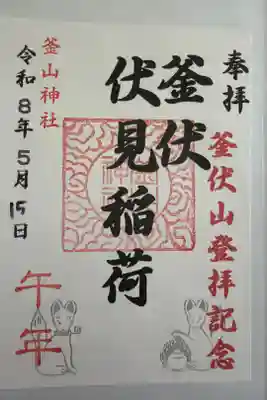 奉拝
釜伏山登拝記念
釜伏
伏見稲荷
釜山神社
令和8年5月15日
午年